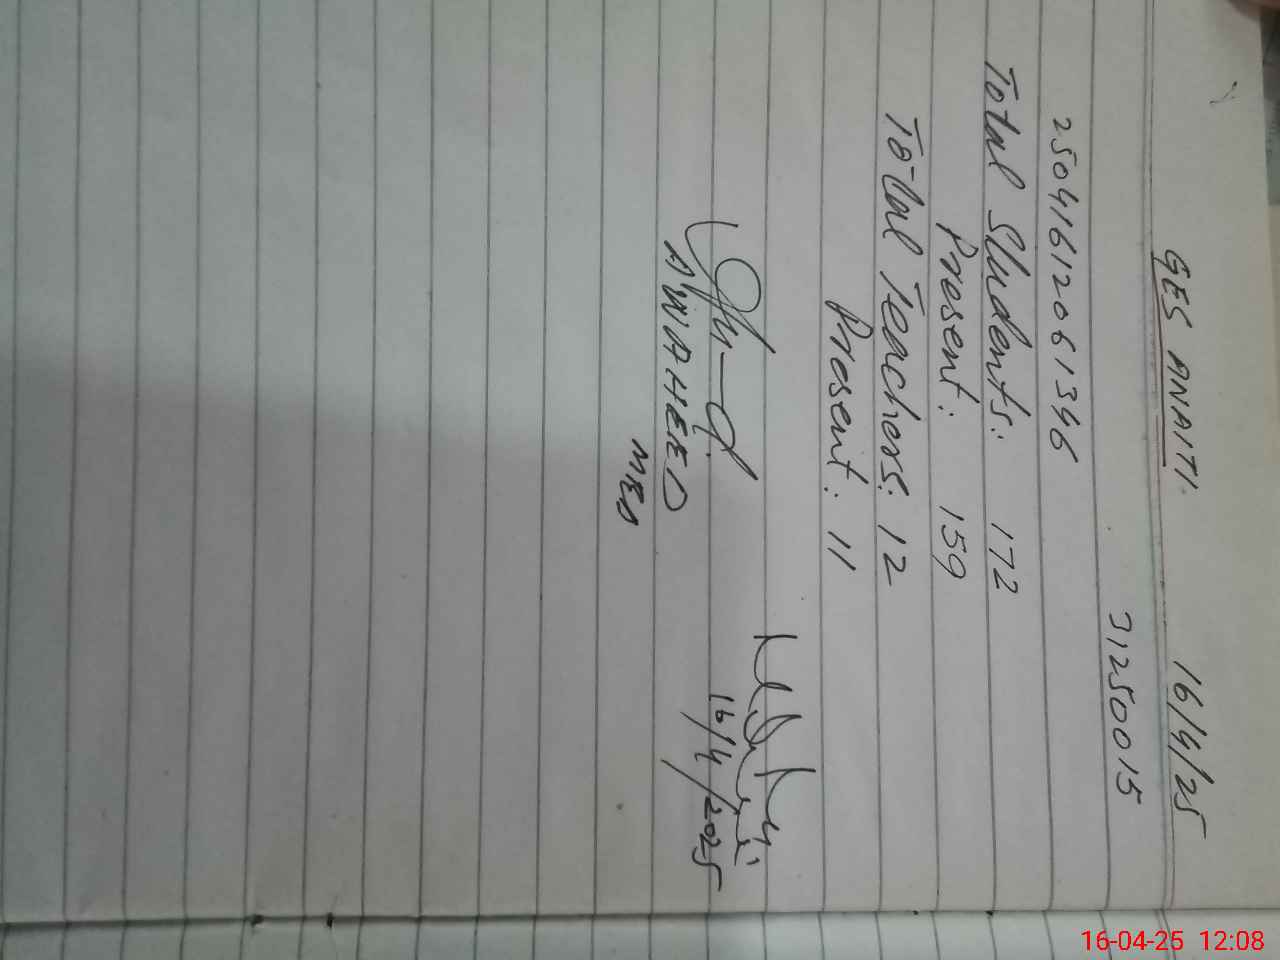 GES ANAITI. 16/4/25
31250015
25041612061346
Total Students: 172
Present: 159
Total Teachers: 12
Present: 11
16/4/2025
A.WAHEED
MEO
16-04-25 12:08